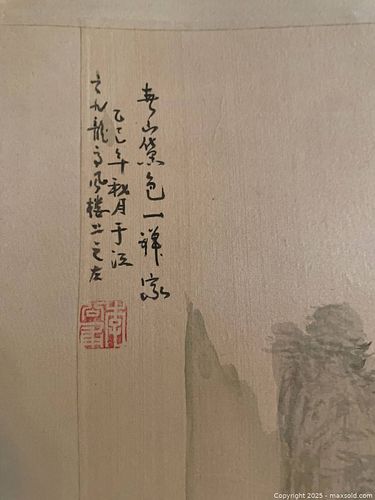 春山黛色一
乙巳年秋月于江
之九龍高風樓上之左
Copyright 2025 - maxsold.com